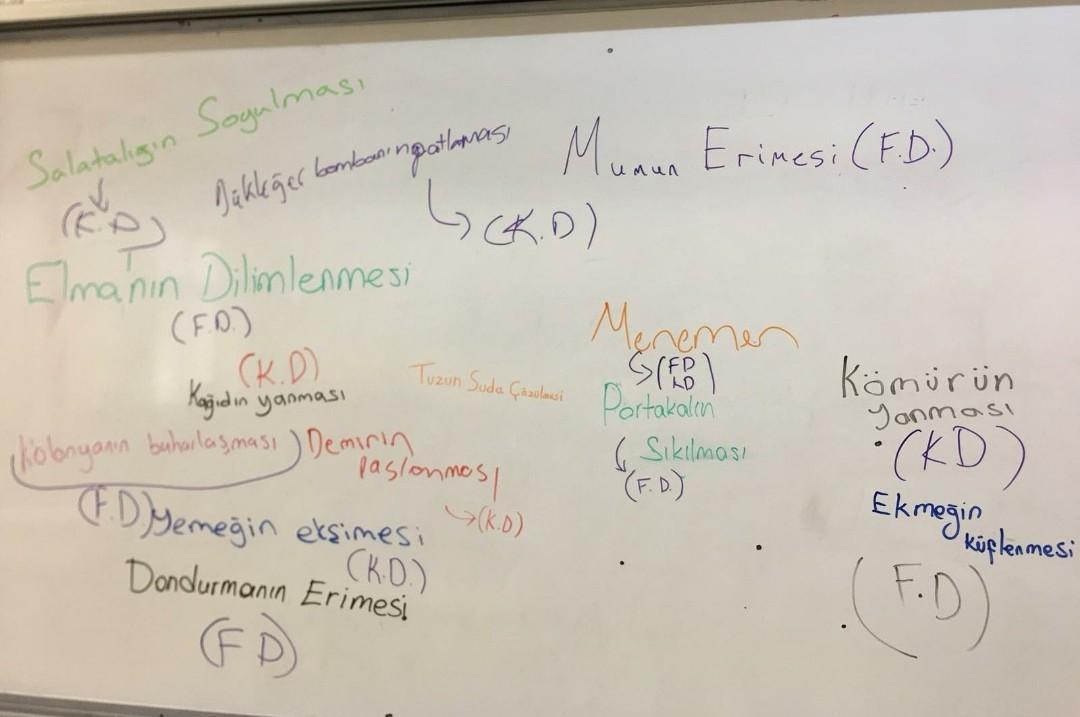 Salatalığın Soyulması
(K.D)
bombanın patlaması
(K.D)
Mumun Erimesi (F.D.)
Elma'nın Dilimlenmesi
(F.D.)
(K.D)
Kağıdın yanması
Tuzun Suda Çözülmesi
Menemen
(FD
KD)
Portakalın
Sıkılması
(F.D.)
Kömürün
yanması
(KD)
Kolonyanın buharlaşması
(F.D)
Demirin
paslanması
(K.D)
Yemeğin ekşimesi
(K.D.)
Dondurmanın Erimesi
(FD)
Ekmeğin
küflenmesi
(F.D)